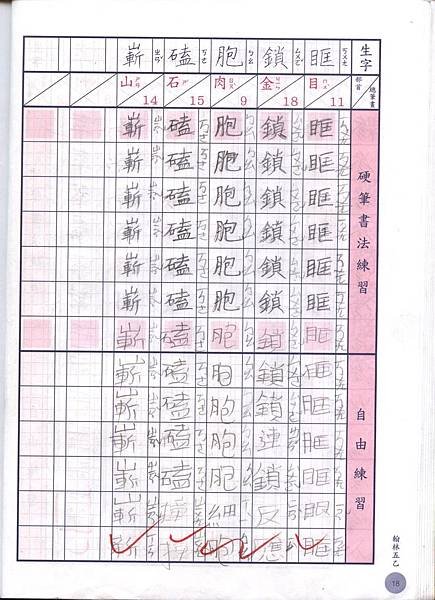 生字
部首
總筆畫
硬筆書法練習
自由練習
眶 ㄎㄨㄤ
目 ㄇㄨˋ 11
眶眶眶眶眶眶眶
眶眶眶眶眼眶
鎖 ㄙㄨㄛˇ
金 ㄐㄧㄣ 18
鎖鎖鎖鎖鎖鎖鎖
鎖鎖連鎖反應
胞 ㄅㄠ
肉 ㄖㄡˋ 9
胞胞胞胞胞胞胞
胞胞胞胞細胞
磕 ㄎㄜ
石 ㄕˊ 15
磕磕磕磕磕磕磕
磕磕磕磕
嶄 ㄓㄢˇ
山 ㄕㄢ 14
嶄嶄嶄嶄嶄嶄嶄
嶄嶄嶄嶄嶄嶄
翰林五乙
18